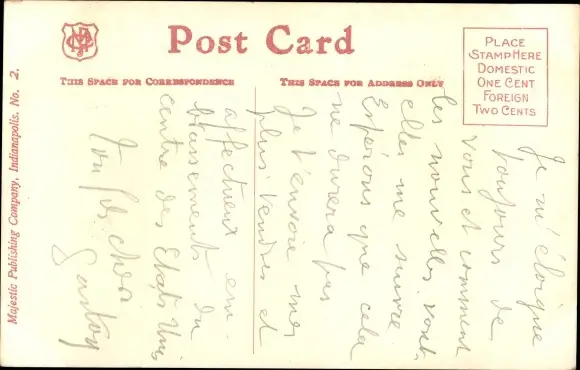 Post Card
THIS SPACE FOR CORRESPONDENCE
THIS SPACE FOR ADDRESS ONLY
PLACE
STAMP HERE
DOMESTIC
ONE CENT
FOREIGN
TWO CENTS
Majestic Publishing Company, Indianapolis, No. 2.
Je m'éloigne
toujours de
vous et comment
les nouvelles vont
elles me suivre
Espérons que cela
ne durera pas
Je t'envoie mes
plus tendres et
affectueux em-
brassements du
centre des Etats Unis
Ton fils chéri
Gaston